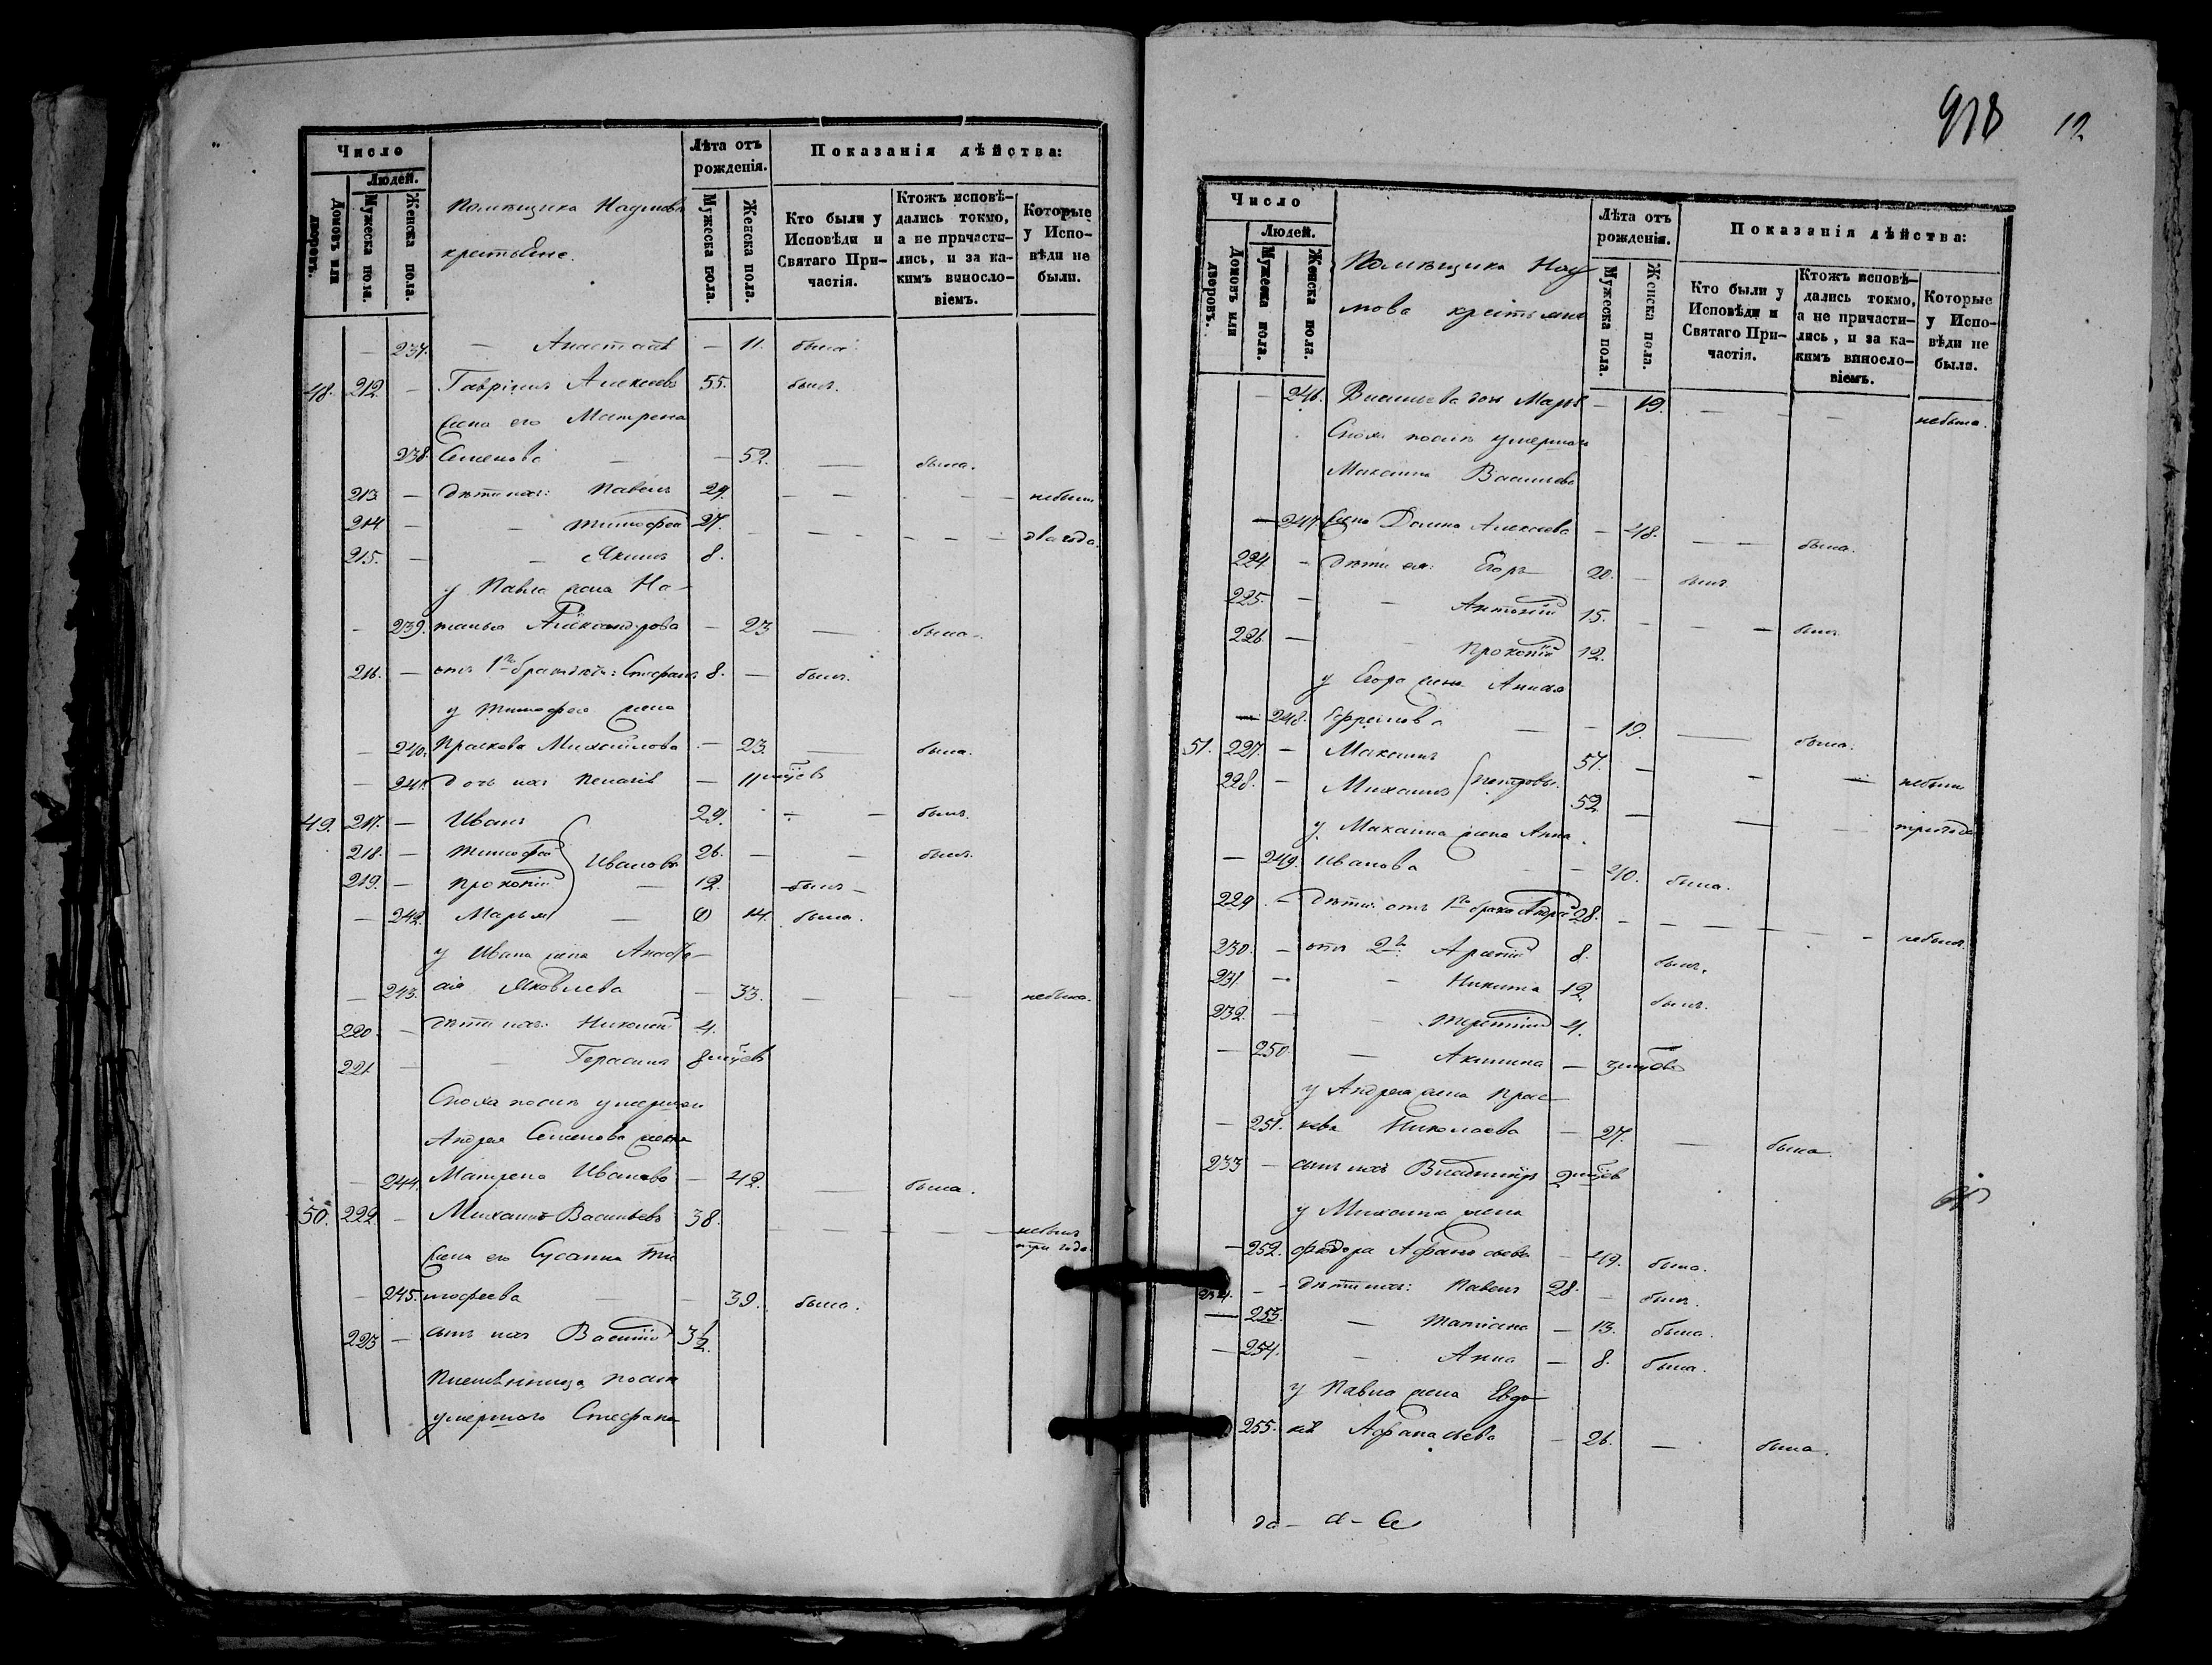 Число
Людей.
Домовъ или дворовъ.
Мужеска пола.
Женска пола.
Помѣщика Наумова
крестьяне.
Лѣта отъ рожденія.
Мужеска пола.
Женска пола.
Показанія дѣйства:
Кто были у Исповѣди и Святаго Причастія.
Ктожъ исповѣдались токмо, а не причастились, и за какимъ винословіемъ.
Которые у Исповѣди не были.
— 237. — Анастасія — 11. была.
48. 212. — Гавріилъ Алексеевъ 55. былъ.
жена его Матрена
238. Семенова — — 52. — была.
213. — дѣти ихъ: Павелъ 29. — — — — не были
214 — — Тимофей 27. — — — — — — два года.
215. — — Якимъ 8.
у Павла жена На-
— 239. талья Александрова — 23 — была.
216. — отъ 1го брака дѣти: Стефанъ 8. — былъ.
у Тимофея жена
— 240. Праскова Михайлова — 23. — была.
— 241. дочь ихъ — 11 мѣсъ
49. 217. — Иванъ 29. — — былъ.
218. — Тимофей Ивановы 26. — — былъ.
219. — Прокопій — 12. былъ —
— 242. Марья — 14. была.
у Ивана жена
— 243. Яковлева — 33. — — — не была.
220. — дѣти ихъ: Николай 4.
221. — — Герасимъ 8 мѣсъ
Сноха послѣ умершаго
Андрея Семенова жена
— 244. Матрена Иванова — 42. — была.
50. 222 — Михаилъ Васильевъ 38. — — — — не былъ
три года.
жена его Сусанна Ти
— 245. мофеева — — 39. была.
223 — сынъ ихъ Василій 3½.
Племянница послѣ
умершаго Стефана
12
Число
Людей.
Домовъ или дворовъ.
Мужеска пола.
Женска пола.
Помѣщика Нау
мова крестьяне
Лѣта отъ рожденія.
Мужеска пола.
Женска пола.
Показанія дѣйства:
Кто были у Исповѣди и Святаго Причастія.
Ктожъ исповѣдались токмо, а не причастились, и за какимъ винословіемъ.
Которые у Исповѣди не были.
— 246. Васильева дочь Марья — 19. — — — не была.
Сноха послѣ умершаго
Максима Васильева
— 247 жена Домна Алексеева — 48. — — была.
224 — дѣти ея: Егоръ 20. — былъ.
225. — — Антоній 15. — — — былъ.
226. — — Прокопій 12.
у Егора жена
— 248. Ефремова — — 19. — была.
51. 227. — Максимъ 57. — — — не были
228. — Михаилъ Петровы. 52. — — — три года
у Максима жена Анна
— 249. Иванова — — 40. была.
229 — дѣти отъ 1го брака Андрей 28. — — — — — не былъ.
230. — отъ 2го Арсеній 8. былъ.
231. — — Никита 12. былъ.
232. — — Терентій 4.
— 250. — Акилина — 3 мѣсъ
у Андрея жена Прас-
— 251. кева Николаева — 27. — была.
233 — сынъ ихъ Владиміръ 2 мѣсъ
у Михаила жена
— 252. Федора Афанасьева — 49. была.
234. — — дѣти ихъ: Павелъ 28. — былъ.
— 253. — Татіана — 13. была.
— 254. — Анна — 8. была.
у Павла жена Евдо-
255. кія Афанасьева — 26. — была.